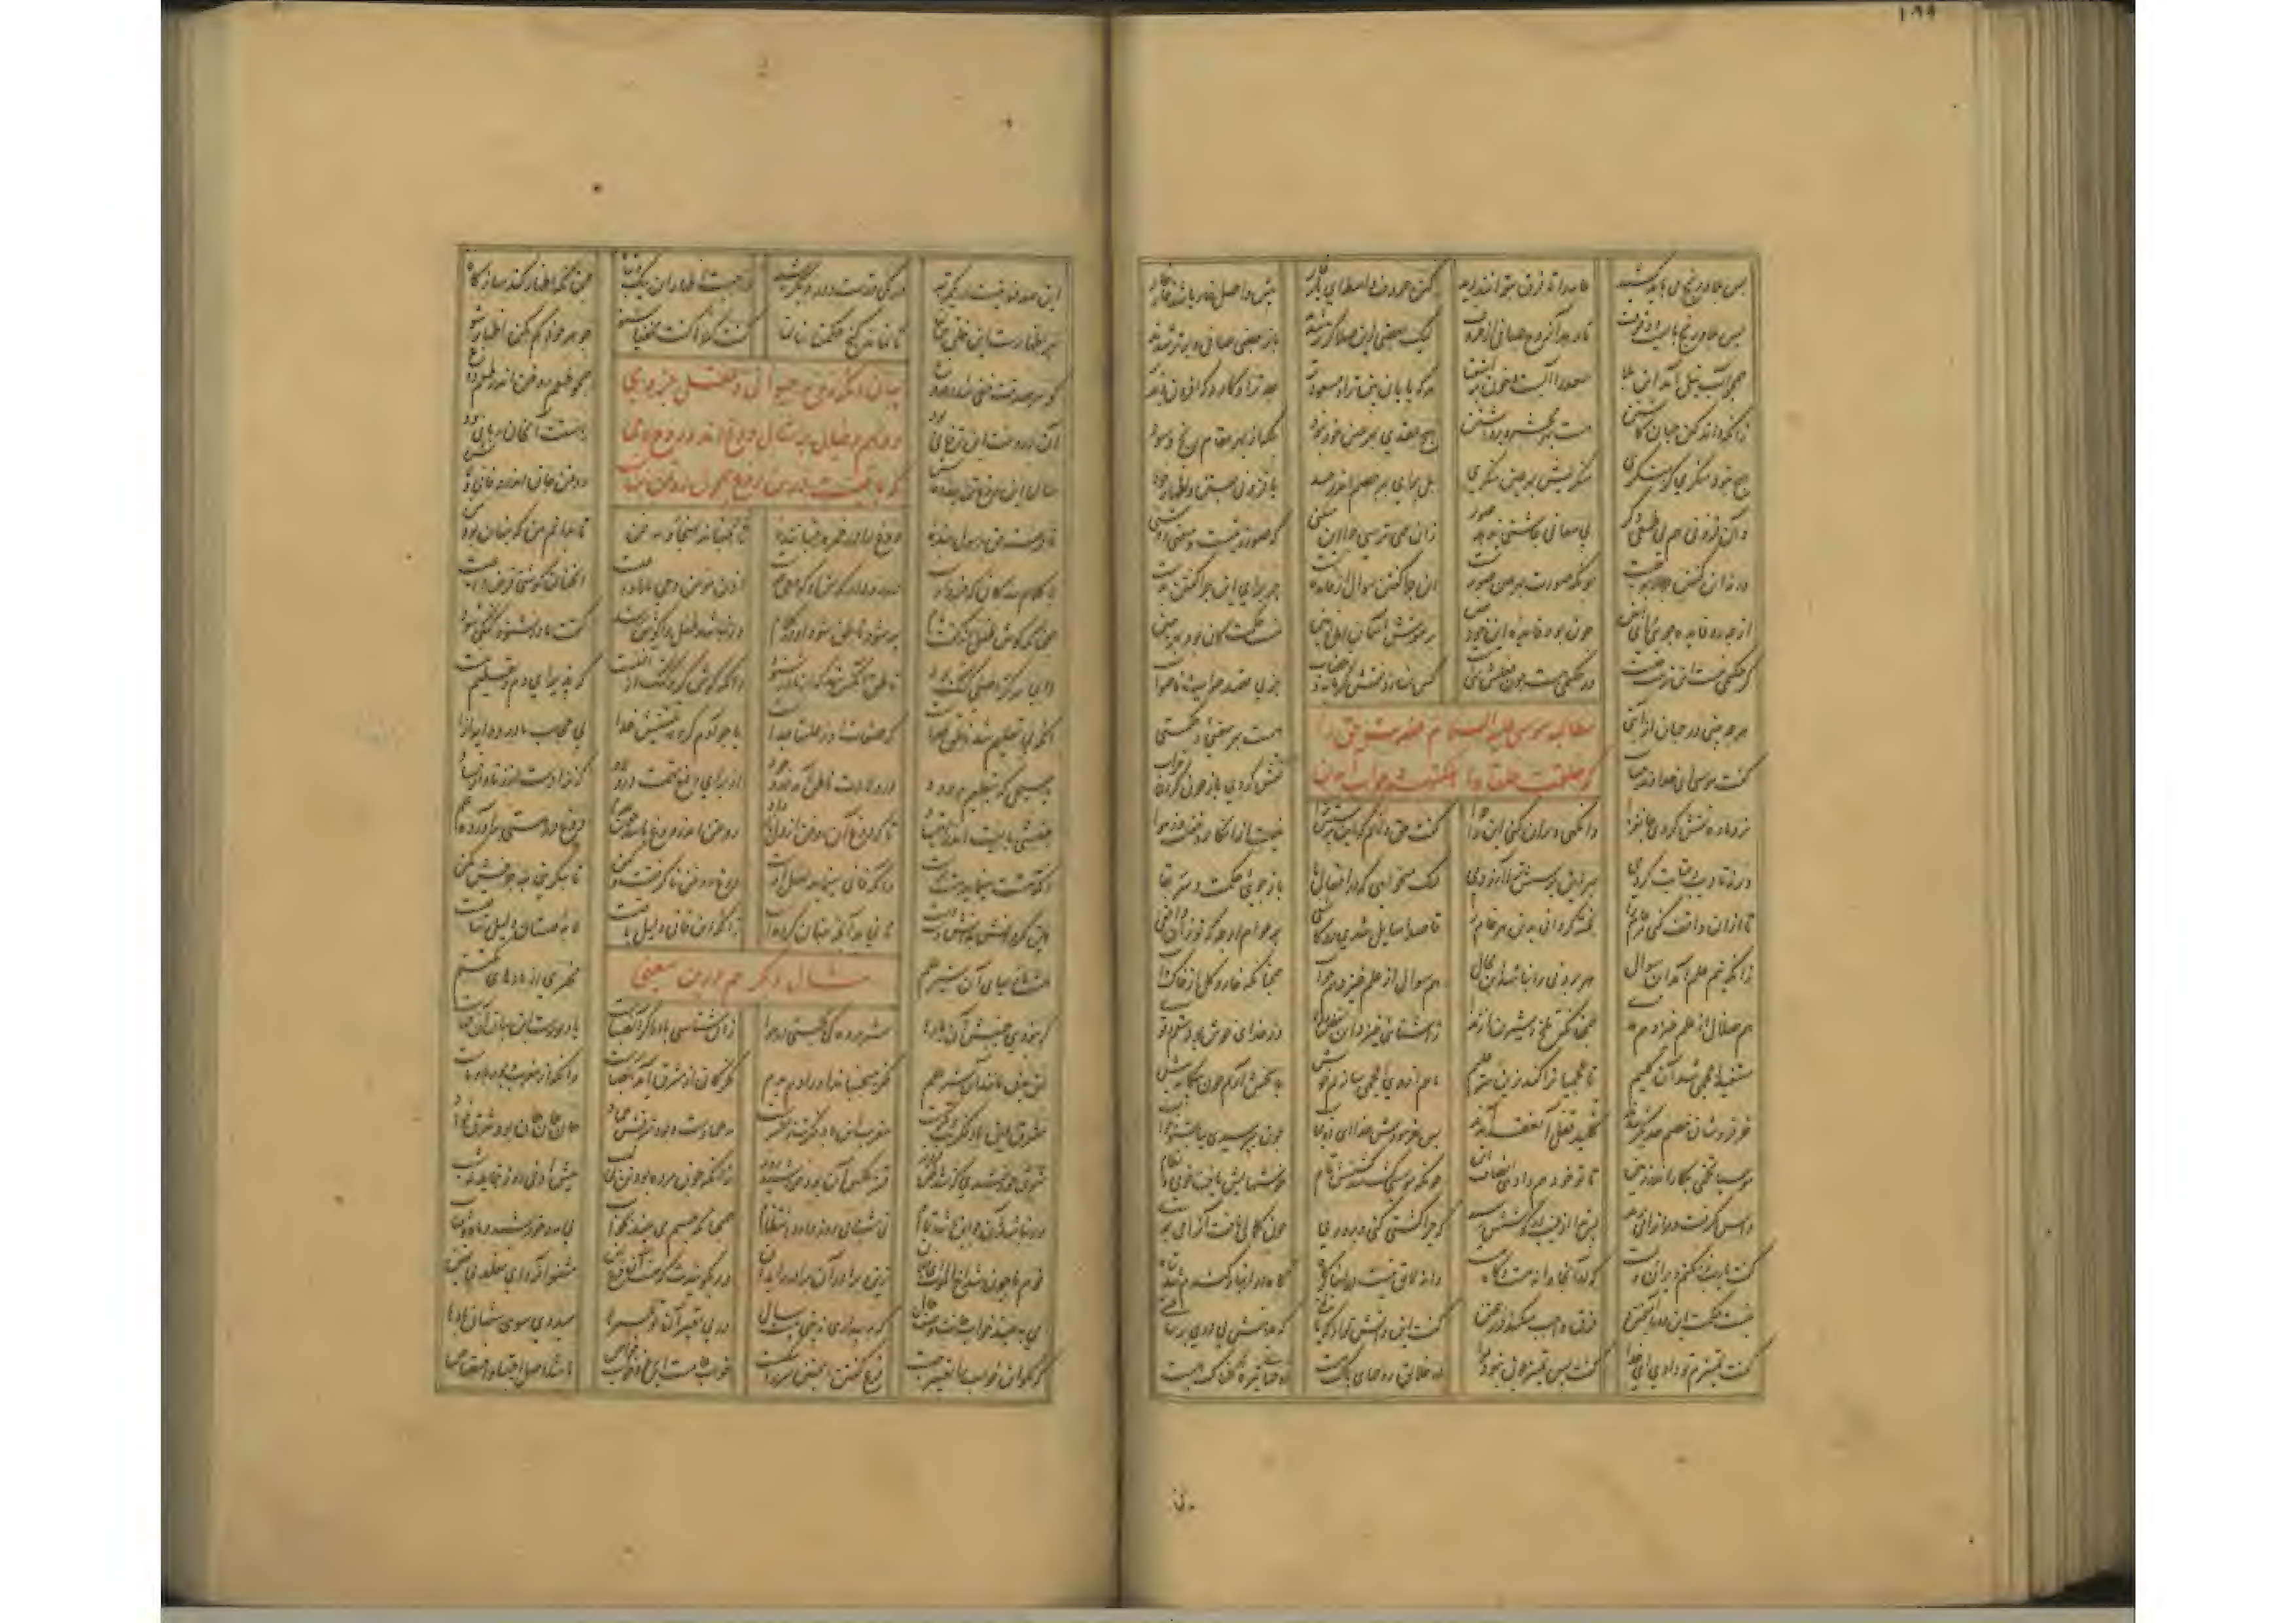 ۱۹۹
پس بلا و رنج می باید کشید عامه را تا فرق بتوانند دید کین حروف واسطه ای یار غار پیش واصل خار باشد خار خار
بس بلا و رنج بایست و وقوف تا رهد آن روح صافی از حروف لیک بعضی زین صدا کرتر شدند باز بعضی صافی و برتر شدند
همچو آب نیل آمد این بلا سعد را آبست و خون بر اشقیا هر که پایان بین تر او مسعودتر جدتر او کارد که افزون دید بر
زانکه داند کین جهان کاشتن هست بهر محشر و برداشتن هیچ عقدی بهر عین خود نبود بلکه از بهر مقام ربح و سود
هیچ نبود منکری گر بنگری منکریش بهر عین منکری بل برای قهر خصم اندر حسد یا فزونی جستن و اظهار خود
وان فزونی هم پی طمع دگر بی معانی چاشنی ندهد صور زان همی پرسی چرا این میکنی که صور زیتست و معنی روشنی
ورنه این گفتن چرا از بهر چیست چونکه صورت بهر عین صورتیست این چرا گفتن سوال از فایده است جز برای این چرا گفتن بدست
از چه رو فایده جویی ای امین چون بود فایده این خود همین پس نقوش آسمان و اهل زمین نیست حکمت کان بود بهر همین
گر حکیمی نیست این ترتیب چیست ور حکیمی هست چون فعلش تهیست کس نسازد نقش گرمابه و خضاب جز پی قصد صواب و ناصواب
مطالبه موسی علیه السلام حضرت حق را
که خلقت خلقا و اهلکتهم و جواب آمدن
هر چه بینی در جهان از آیتی هست بهر معنی و حکمتی
گفت موسی ای خداوند حساب نقش کردی باز چون کردی خراب
نر و ماده نقش کردی جانفزا وانگهی ویران کنی این را چرا گفت حق دانم که این پرسش ترا نیست از انکار و غفلت وز هوا
ورنه تادیب و عتابت کردمی بهر این پرسش ترا آزردمی لیک میخواهی که در افعال ما باز جویی حکمت و سر بقا
تا از آن واقف کنی مر عام را پخته گردانی بدین هر خام را قاصدا سایل شدی در کاشفی بر عوام ار چه که تو زان واقفی
زانکه نیم علم آمد این سوال هر برونی را نباشد این مجال هم سوال از علم خیزد هم جواب همچنانکه خار و گل از خاک و آب
هم ضلال از علم خیزد هم هدی همچنانکه تلخ و شیرین از ندا ز آشنایی خیزد این بغض و ولا وز غذای خوش بود سقم و قوی
مستفید اعجمی شد آن کلیم تا عجمیان را کند زین سر علیم ما هم از وی اعجمی سازیم خویش پاسخش آریم چون بیگانه پیش
خرفروشان خصم همدیگر شدند تا کلید قفل آن عقد آمدند پس بفرمودش خدا ای ذولباب چون بپرسیدی بیا بشنو جواب
موسیا تخمی بکار اندر زمین تا تو خود هم وا دهی انصاف این چونکه موسی کشت و شد کشتش تمام خوشهایش یافت خوبی و نظام
داس بگرفت و مر آنرا می برید پس ندا از غیب در گوشش رسید که چرا کشتی کنی و پروری چون کمالی یافت آنرا می بری
گفت یا رب زان کنم ویران و پست که در اینجا دانه هست و کاه هست دانه لایق نیست در انبار کاه کاه در انبار گندم هم تباه
نیست حکمت این دو را آمیختن فرق واجب میکند در بیختن گفت این دانش تو از که یافتی
گفت تمییزم تو دادی ای خدا گفت پس تمییز چون نبود مرا در خلایق روحهای پاک هست روحهای تیره گلناک هست
این صدفها نیست در یک مرتبه در یکی درست و در دیگر شبه واجبست اظهار این نیک و تباه همچنانکه اظهار گندمها ز کاه
بهر اظهارست این خلق جهان تا نماند گنج حکمتها نهان کنت کنزا گفت مخفیا شنو جوهر خود گم مکن اظهار شو
بیان آنکه روح حیوانی و عقل جزوی
و وهم و خیال بر مثال دوغ اند و روح وحی
که باقیست درین دوغ همچون روغن پنهانست
گوهر صدقت خفی شد در دروغ همچو طعم روغن اندر طعم دوغ
آن دروغت این تن فانی بود راستت آن جان ربانی بود
سالها این دوغ تن پیدا و فاش روغن جان اندرو فانی و لاش
تا فرستد حق رسولی بنده دوغ را در خمره جنباننده تا بجنباند بهنجار و به فن تا بدانم من که پنهان بود من
یا کلام بنده کان جزو اوست در رود در گوش او کو وحی جوست اذن مومن وحی ما را واعیست آنچنان گوشی قرین داعیست
همچنانکه گوش طفل از گفت مام پر شود ناطق شود او در کلام ور نباشد طفل را گوش رشد گفت مادر نشنود گنگی شود
دایما هر کر اصلی گنگ بود ناطق آنکس شد که از مادر شنود دانکه گوش کر و گنگ از آفتست که پذیرای دم و تعلیم نیست
آنکه بی تعلیم بد ناطق خداست که صفات او ز علتها جداست یا چو آدم کرده تلقینش خدا بی حجاب مادر و دایه و ازا
یا مسیحی که بتعلیم ودود در ولادت ناطق آمد در وجود از برای دفع تهمت در ولاد که نزادست از زنا و از فساد
جنبشی بایست اندر اجتهاد تا که دوغ آن روغن از دل باز داد روغن اندر دوغ باشد چون عدم دوغ در هستی برآورده علم
آنکه هستت مینماید هست پوست وانکه فانی مینماید اصل اوست دوغ روغن ناگرفتست و کهن تا بنگزینی بنه خرجش مکن
هین بگردانش بدانش دست دست تا نماید آنچه پنهان کرده است زانکه این فانی دلیل باقیست لابه مستان دلیل ساقیست
مثال دیگر هم درین معنی
هست بازیهای آن شیر علم مخبری از بادهای مکتتم
گر نبودی جنبش آن بادها شیر مرده کی بجستی در هوا زان شناسی باد را گر آن صباست یا دبورست این بیان آن خفاست
این بدن مانند آن شیر علم فکر میجنباند او را دم بدم فکر کان از مشرق آید آن صباست وانکه از مغرب دبور با وباست
مشرق این باد فکرت دیگرست مغرب این باد فکرت زان سرست مه جمادست و بود شرقش جماد جان جان جان بود شرق فواد
شرق خورشیدی که شد باطن فروز قشر و عکس آن بود خورشید روز زانکه چون مرده بود تن بی لهب پیش او نی روز بنماید نه شب
ور نباشد آن چو این باشد تمام بی شب و بی روز دارد انتظام همچنانکه چشم می بیند بخواب بی مه و خورشید ماه و آفتاب
نوم ما چون شد اخ الموت ای فلان زین برادر آن برادر را بدان ور بگویندت که هست آن فرع این مشنو آنرا ای مقلد بی یقین
می ببیند خواب جانت وصف حال که به بیداری نبینی بیست سال در پی تعبیر آن تو عمرها میدوی سوی شهان با دها
که بگو آن خواب را تعبیر چیست فرع گفتن این چنین سر را سگیست خواب عامست این و خود خواب خواص باشد اصل اجتبا و اختصاص